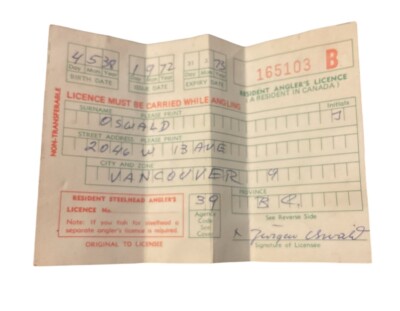 4 5 38
1 9 72
31 3 73
165103 B
Day Month Year
Day Month Year
Day Month Year
BIRTH DATE
ISSUE DATE
EXPIRY DATE
RESIDENT ANGLER'S LICENCE
(A RESIDENT IN CANADA)
NON-TRANSFERABLE
LICENCE MUST BE CARRIED WHILE ANGLING
SURNAME PLEASE PRINT Initials
OSWALD J
STREET ADDRESS PLEASE PRINT
2046 W 13 AVE
CITY AND ZONE
VANCOUVER 9
RESIDENT STEELHEAD ANGLER'S
LICENCE No.
Note: If you fish for steelhead a
separate angler's licence is required.
39
Agency
Code
See
Cover
PROVINCE
B C.
See Reverse Side
x Jurgen Oswald
Signature of Licensee
ORIGINAL TO LICENSEE